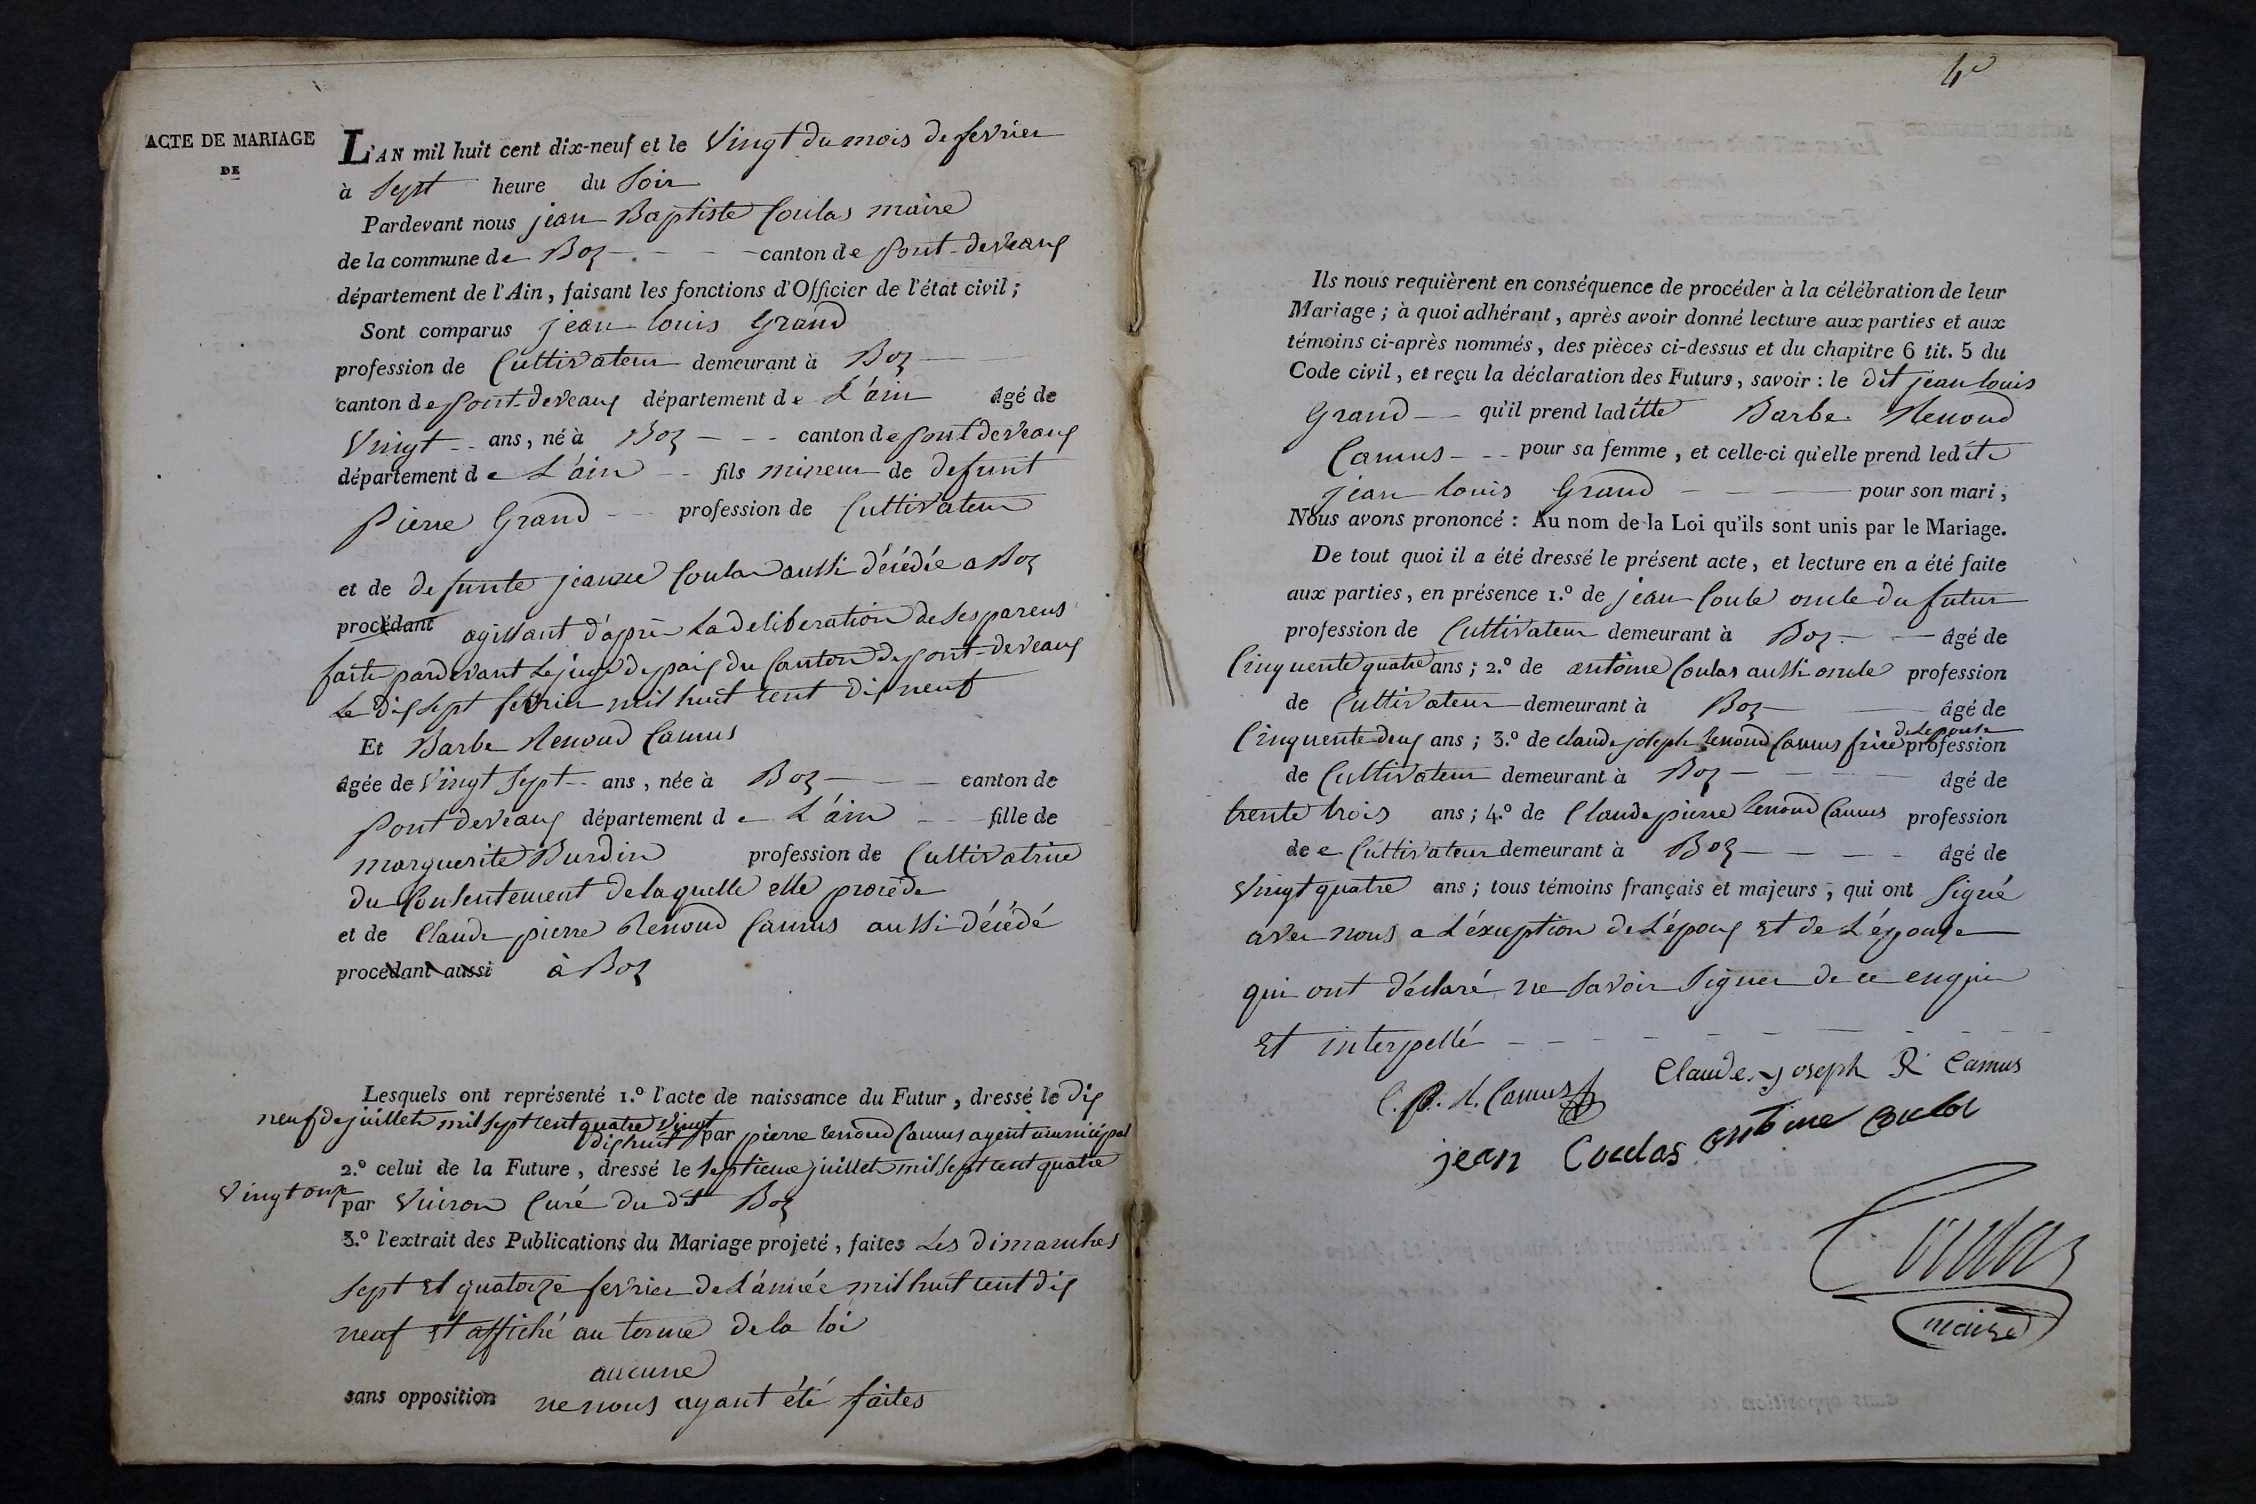 ACTE DE MARIAGE
DE
L'AN mil huit cent dix-neuf et le Vingt du mois de fevrier
à Sept heure du Soir
Pardevant nous jean Baptiste Coulas maire
de la commune de Boz canton de pont-deveaux
département de l'Ain, faisant les fonctions d'Officier de l'état civil;
Sont comparus jean louis Grand
profession de Cultivateur demeurant à Boz
canton de pont-deveaux département de L'ain âgé de
Vingt ans, né à Boz canton de pont deveaux
département de L'ain fils mineur de defunt
Pierre Grand profession de Cultivateur
et de defunte jeanne Coulas aussi décédée a Boz
procédant agissant d'après La deliberation de ses parens
faite pardevant Le juge de paix du Canton de pont-deveaux
Le dix sept fevrier mil huit cent dix neuf
Et Barbe Renoud Camus
âgée de Vingt sept ans, née à Boz canton de
pont deveaux département de L'ain fille de
marguerite Burdin profession de Cultivatrice
du Consentement de laquelle elle procède
et de Claude pierre Renoud Camus aussi décédé
procédant aussi à Boz
Lesquels ont représenté 1.º l'acte de naissance du Futur, dressé le dix
neuf de juillet mil sept cent quatre vingt
dix huit par pierre renoud Camus agent municipal
2.º celui de la Future, dressé le septieme juillet mil sept cent quatre
Vingt onze par Vuiron Curé du dt Boz
3.º l'extrait des Publications du Mariage projeté, faites Les dimanches
sept et quatorze fevrier de L'année mil huit cent dix
neuf et affiché au terme de la loi
aucune
sans opposition ne nous ayant été faites
4e
Ils nous requièrent en conséquence de procéder à la célébration de leur
Mariage; à quoi adhérant, après avoir donné lecture aux parties et aux
témoins ci-après nommés, des pièces ci-dessus et du chapitre 6 tit. 5 du
Code civil, et reçu la déclaration des Futurs, savoir: le dit jean louis
Grand qu'il prend laditte Barbe Renoud
Camus pour sa femme, et celle-ci qu'elle prend ledite
jean louis Grand pour son mari;
Nous avons prononcé: Au nom de la Loi qu'ils sont unis par le Mariage.
De tout quoi il a été dressé le présent acte, et lecture en a été faite
aux parties, en présence 1.º de jean Coula oncle du futur
profession de Cultivateur demeurant à Boz âgé de
Cinquente quatre ans; 2.º de antoine Coulas aussi oncle profession
de Cultivateur demeurant à Boz âgé de
de Lepouse
Cinquente deux ans; 3.º de claude joseph renoud Camus frère profession
de Cultivateur demeurant à Boz âgé de
trente trois ans; 4.º de Claude pierre renoud Camus profession
de e Cultivateur demeurant à Boz âgé de
Vingt quatre ans; tous témoins français et majeurs, qui ont signé
avec nous a L'éxception de L'époux et de L'épouse
qui ont déclaré ne savoir signer de ce enquis
et interpellé
Claude joseph R Camus
C. p. R. Camus
jean Coulas antoine
Coulas
maire